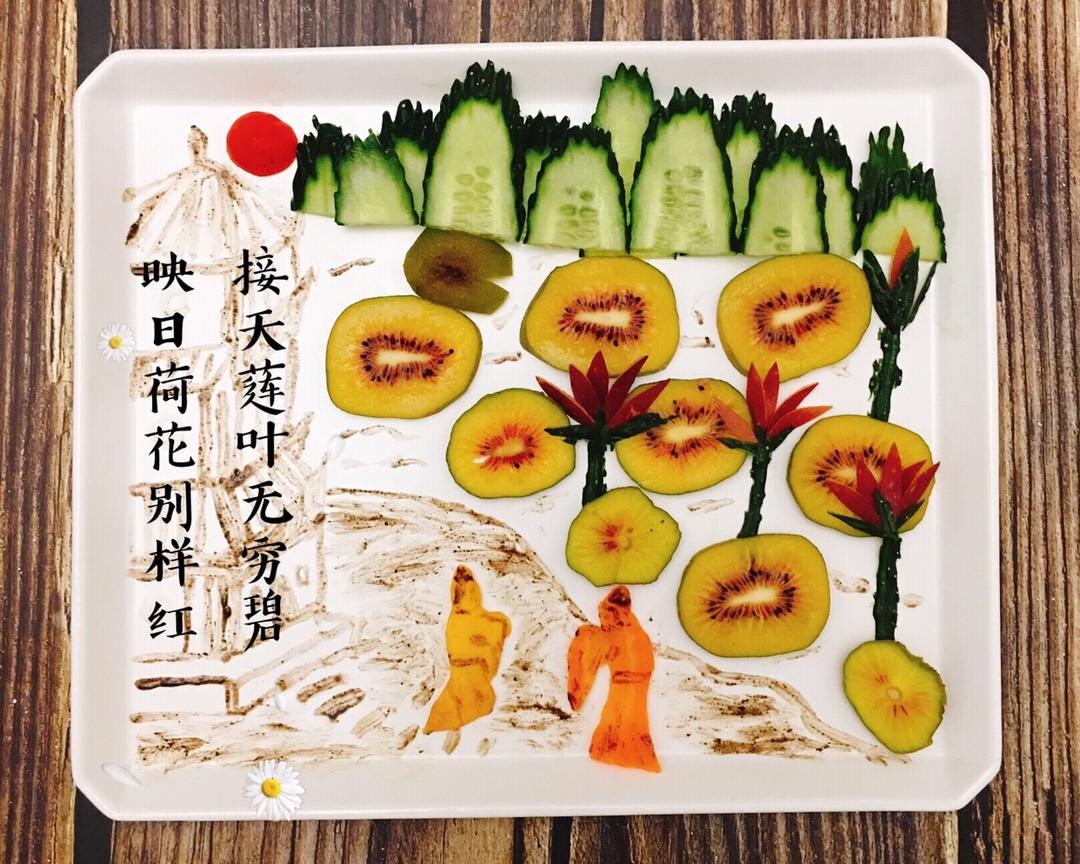 接天莲叶无穷碧
映日荷花别样红